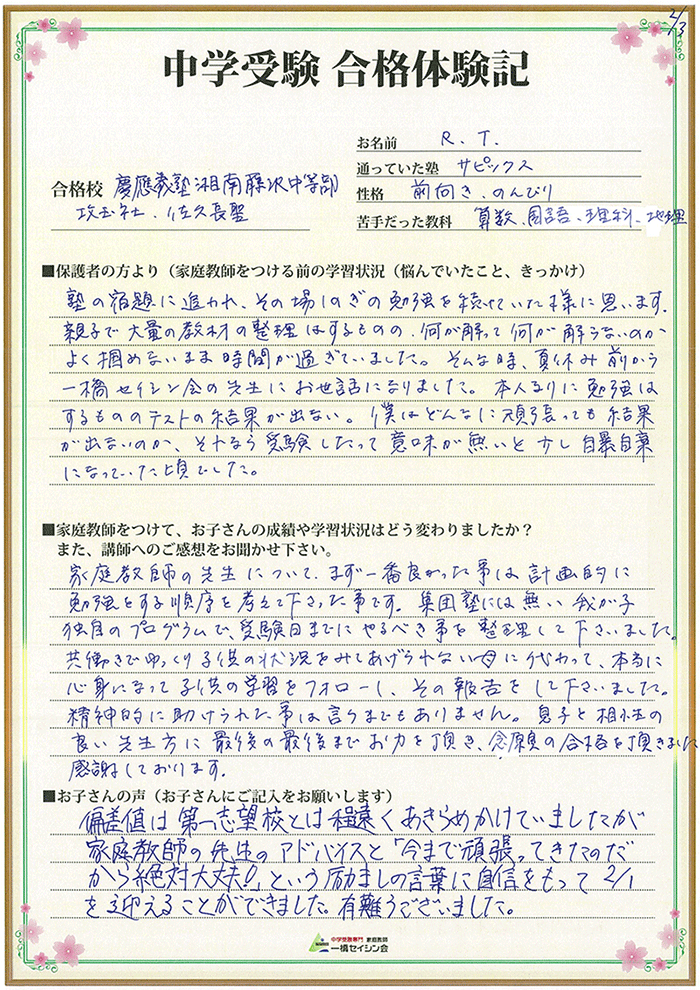 2/3
中学受験 合格体験記
お名前 R. T.
通っていた塾 サピックス
合格校 慶應義塾湘南藤沢中等部
性格 前向き、のんびり
攻玉社、佐久長聖
苦手だった教科 算数、国語、理科、地理
■保護者の方より（家庭教師をつける前の学習状況（悩んでいたこと、きっかけ）
塾の宿題に追われ、その場しのぎの勉強を続けていた様に思います。
親子で大量の教材の整理はするものの、何が解って何が解らないのか
よく掴めないまま時間が過ぎていました。そんな時、夏休み前から
一橋セイシン会の先生にお世話になりました。本人なりに勉強は
するもののテストの結果が出ない。僕はどんなに頑張っても結果
が出ないのか、それなら受験したって意味が無いと少し自暴自棄
になっていた頃でした。
■家庭教師をつけて、お子さんの成績や学習状況はどう変わりましたか？
また、講師へのご感想をお聞かせ下さい。
家庭教師の先生について、まず一番良かった事は計画的に
勉強をする順序を考えて下さった事です。集団塾には無い我が子
独自のプログラムで、受験日までにやるべき事を整理して下さいました。
共働きでゆっくり子供の状況をみてあげられない母に代わって、本当に
心身になって子供の学習をフォローし、その報告をして下さいました。
精神的に助けられた事は言うまでもありません。息子と相性の
良い先生方に最後の最後までお力を頂き、念願の合格を頂きました
感謝しております。
■お子さんの声（お子さんにご記入をお願いします）
偏差値は第一志望校とは程遠くあきらめかけていましたが
家庭教師の先生のアドバイスと「今まで頑張ってきたのだ
から絶対大丈夫!!」という励ましの言葉に自信をもって 2/1
を迎えることができました。有難うございました。
中学受験専門 家庭教師
一橋セイシン会